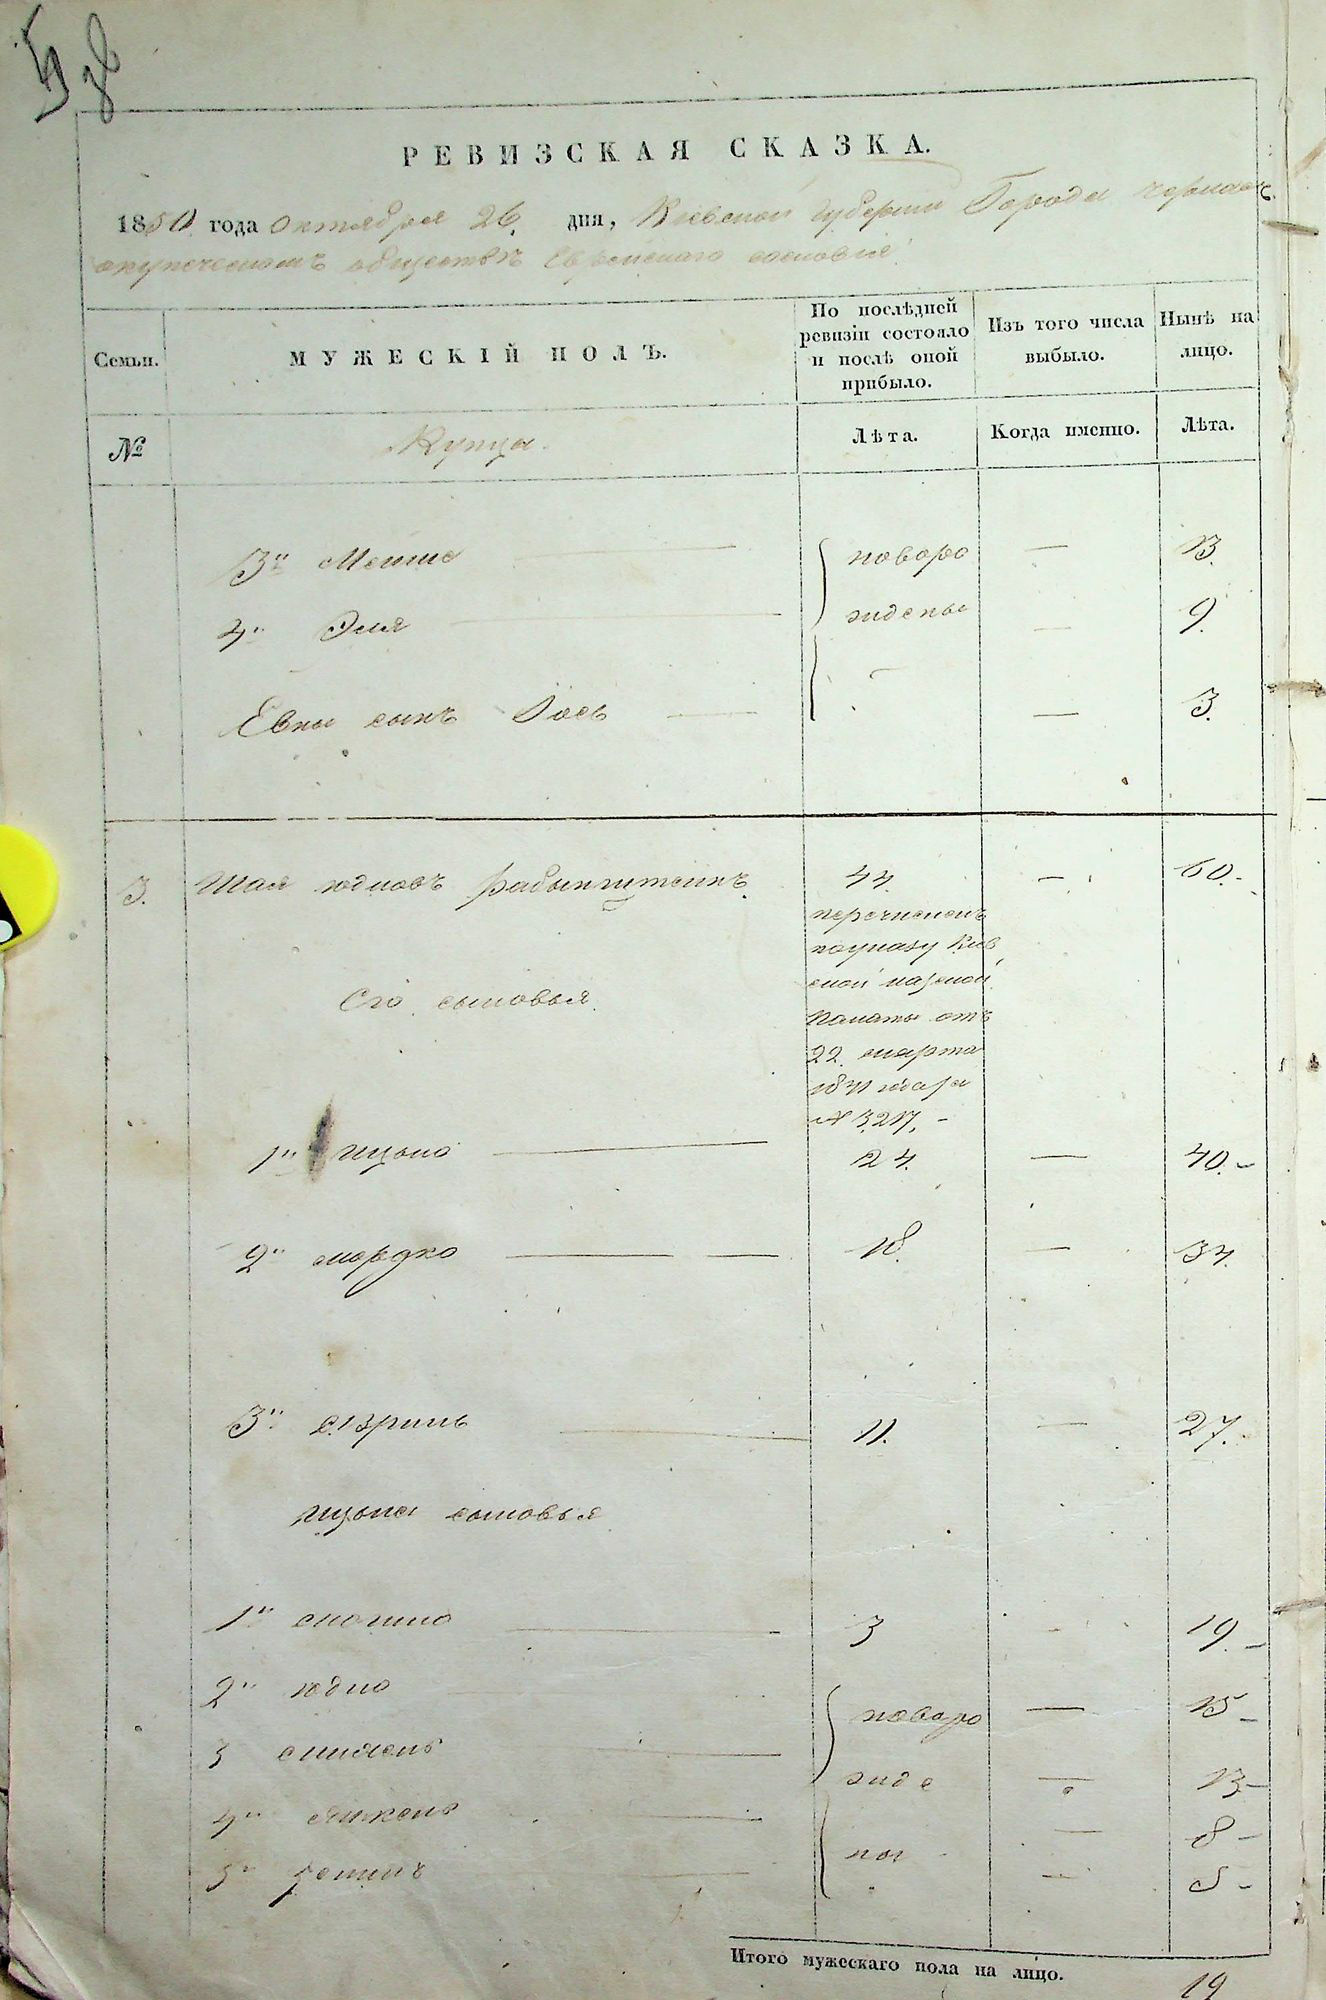 РЕВИЗСКАЯ СКАЗКА.
1850 года октября 26. дня, Киевской губернии Города
купеческомъ обществѣ Еврейскаго сословія
Семьи.
МУЖЕСКІЙ ПОЛЪ.
По послѣдней ревизіи состояло и послѣ оной прибыло.
Изъ того числа выбыло.
Нынѣ на лицо.
№
Купцы.
Лѣта.
Когда именно.
Лѣта.
3й новоро — 13.
4й Эля ждены — 9.
сынъ Іось — 3.
3. Шая Юдковъ 44. — 60.
перечисленъ
по указу Киев
ской казеной
Палаты отъ
22. марта
Его сыновья
1й Ицько 24. — 40.
2й Мордко 18. — 34.
3й Азриль 11. — 27.
Ицька сыновья
1й 3 19.
2й Юдко новоро — 15
3 жде — 13
4й Янкель — 8
5й ны — 5
Итого мужескаго пола на лицо. 12